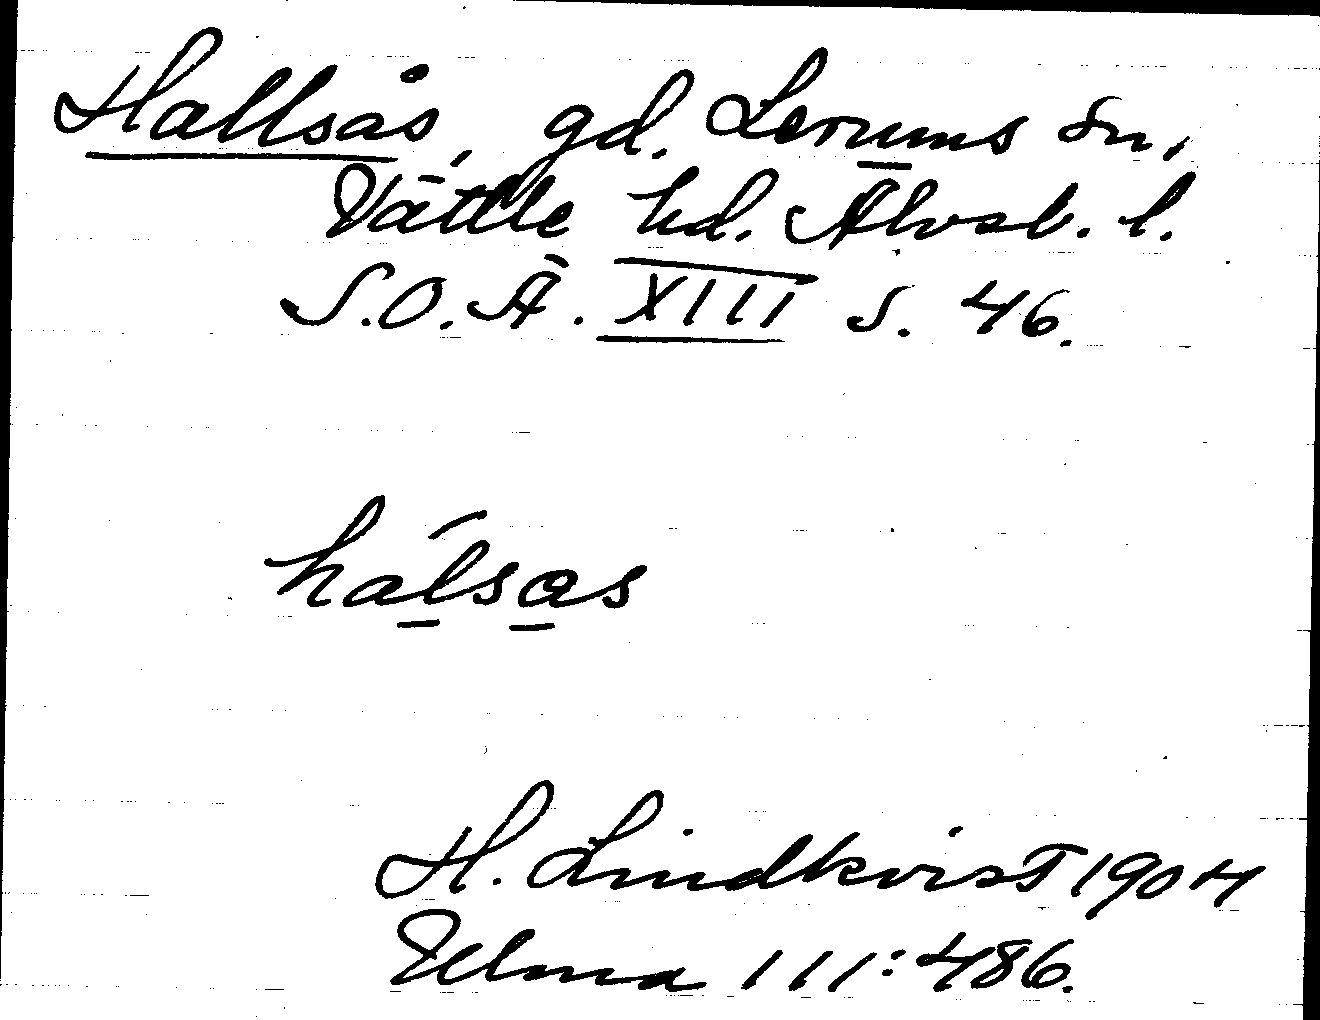 Hallsås, gd. Lerums sn,
Vättle hd. Älvsb. l.
S.O.Ä. XIII s. 46.
hálsas
H. Lindkvist 1904
Ulma 111:486.